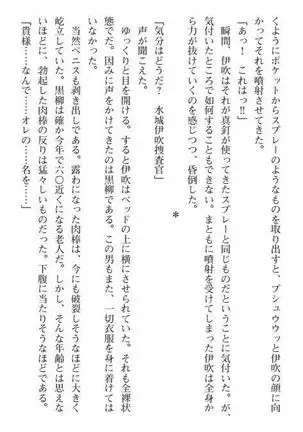 くようにポケットからスプレーのようなものを取り出すと、プシュウウッと伊吹の顔に向
かってそれを噴射させてきた。
「あっ！　これはっ！」
気付いた時には遅かった。まともに噴射を受けてしまった伊吹は全身か
ら力が抜けていくのを感じつつ、昏倒した。
＊
「気分はどうだ？　水城伊吹捜査官」
声が聞こえた。
ゆっくりと目を開ける。すると伊吹はベッドの上に横にさせられていた。それも全裸状
態でだ。因みに声をかけてきたのは黒柳である。この男もまた、一切衣服を身に着けては
いなかった。
当然ペニスも剥き出しである。露わになった肉棒は、今にも破裂しそうなほどに大きく
屹立していた。黒柳は確か今年で六〇近くになる老人だ。しかし、そんな年齢とは思えな
いほどに、勃起した肉棒の反りは猛々しいものだった。下腹に当たりそうなほどである。
「貴様……なんで……オレの……名を……」